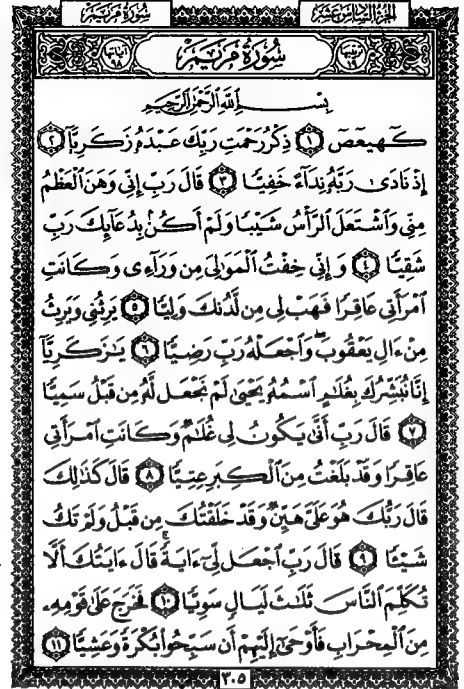 الجُزْءُ السَّادِسَ عَشَرَ سُورَةُ مَرْيَم
ترتيبها ١٩ سُورَةُ مَرْيَمَ آياتها ٩٨
بِسْمِ ٱللَّهِ ٱلرَّحْمَٰنِ ٱلرَّحِيمِ
كٓهيعٓصٓ ١ ذِكْرُ رَحْمَتِ رَبِّكَ عَبْدَهُۥ زَكَرِيَّآ ٢
إِذْ نَادَىٰ رَبَّهُۥ نِدَآءً خَفِيًّا ٣ قَالَ رَبِّ إِنِّى وَهَنَ ٱلْعَظْمُ
مِنِّى وَٱشْتَعَلَ ٱلرَّأْسُ شَيْبًا وَلَمْ أَكُنۢ بِدُعَآئِكَ رَبِّ
شَقِيًّا ٤ وَإِنِّى خِفْتُ ٱلْمَوَٰلِىَ مِن وَرَآءِى وَكَانَتِ
ٱمْرَأَتِى عَاقِرًا فَهَبْ لِى مِن لَّدُنكَ وَلِيًّا ٥ يَرِثُنِى وَيَرِثُ
مِنْ ءَالِ يَعْقُوبَ ۖ وَٱجْعَلْهُ رَبِّ رَضِيًّا ٦ يَٰزَكَرِيَّآ
إِنَّا نُبَشِّرُكَ بِغُلَٰمٍ ٱسْمُهُۥ يَحْيَىٰ لَمْ نَجْعَل لَّهُۥ مِن قَبْلُ سَمِيًّا
٧ قَالَ رَبِّ أَنَّىٰ يَكُونُ لِى غُلَٰمٌ وَكَانَتِ ٱمْرَأَتِى
عَاقِرًا وَقَدْ بَلَغْتُ مِنَ ٱلْكِبَرِ عِتِيًّا ٨ قَالَ كَذَٰلِكَ
قَالَ رَبُّكَ هُوَ عَلَىَّ هَيِّنٌ وَقَدْ خَلَقْتُكَ مِن قَبْلُ وَلَمْ تَكُ
شَيْـًٔا ٩ قَالَ رَبِّ ٱجْعَل لِّىٓ ءَايَةً ۚ قَالَ ءَايَتُكَ أَلَّا
تُكَلِّمَ ٱلنَّاسَ ثَلَٰثَ لَيَالٍ سَوِيًّا ١٠ فَخَرَجَ عَلَىٰ قَوْمِهِۦ
مِنَ ٱلْمِحْرَابِ فَأَوْحَىٰٓ إِلَيْهِمْ أَن سَبِّحُوا۟ بُكْرَةً وَعَشِيًّا ١١
٣٠٥